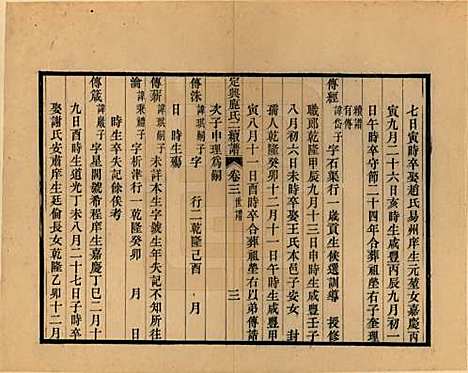 七日寅時卒娶趙氏易州庠生元堃女嘉慶丙
寅九月二十六日亥時生咸豐丙辰九月初一
日午時卒守節二十四年合葬祖塋右子奎理
續譜
有傳
傳經 諱岱子 字石渠行一歲貢生候選訓導 授修
職郎乾隆甲辰九月十三日申時生咸豐壬子
八月初六日未時卒娶王氏本邑子安女 封
孺人乾隆癸卯十二月十一日卯時生咸豐甲
寅八月十一日酉時卒合葬祖塋右以弟傳誥
次子中理為嗣
定興鹿氏二續譜 卷三 世譜 三
傳洙 諱琪嗣子 字 行二乾隆己酉 月
日 時生殤
傳薪 諱琪嗣子 未詳本生字號生年失記不知所往
論 諱秉禮子 字析津行一乾隆癸卯 月 日
時生卒失記餘俟考
傳箴 諱嚴子 字星閣號希程庠生嘉慶丁巳二月十
九日酉時生道光丁未八月二十七日子時卒
娶謝氏安肅庠生廷倫長女乾隆乙卯十二月